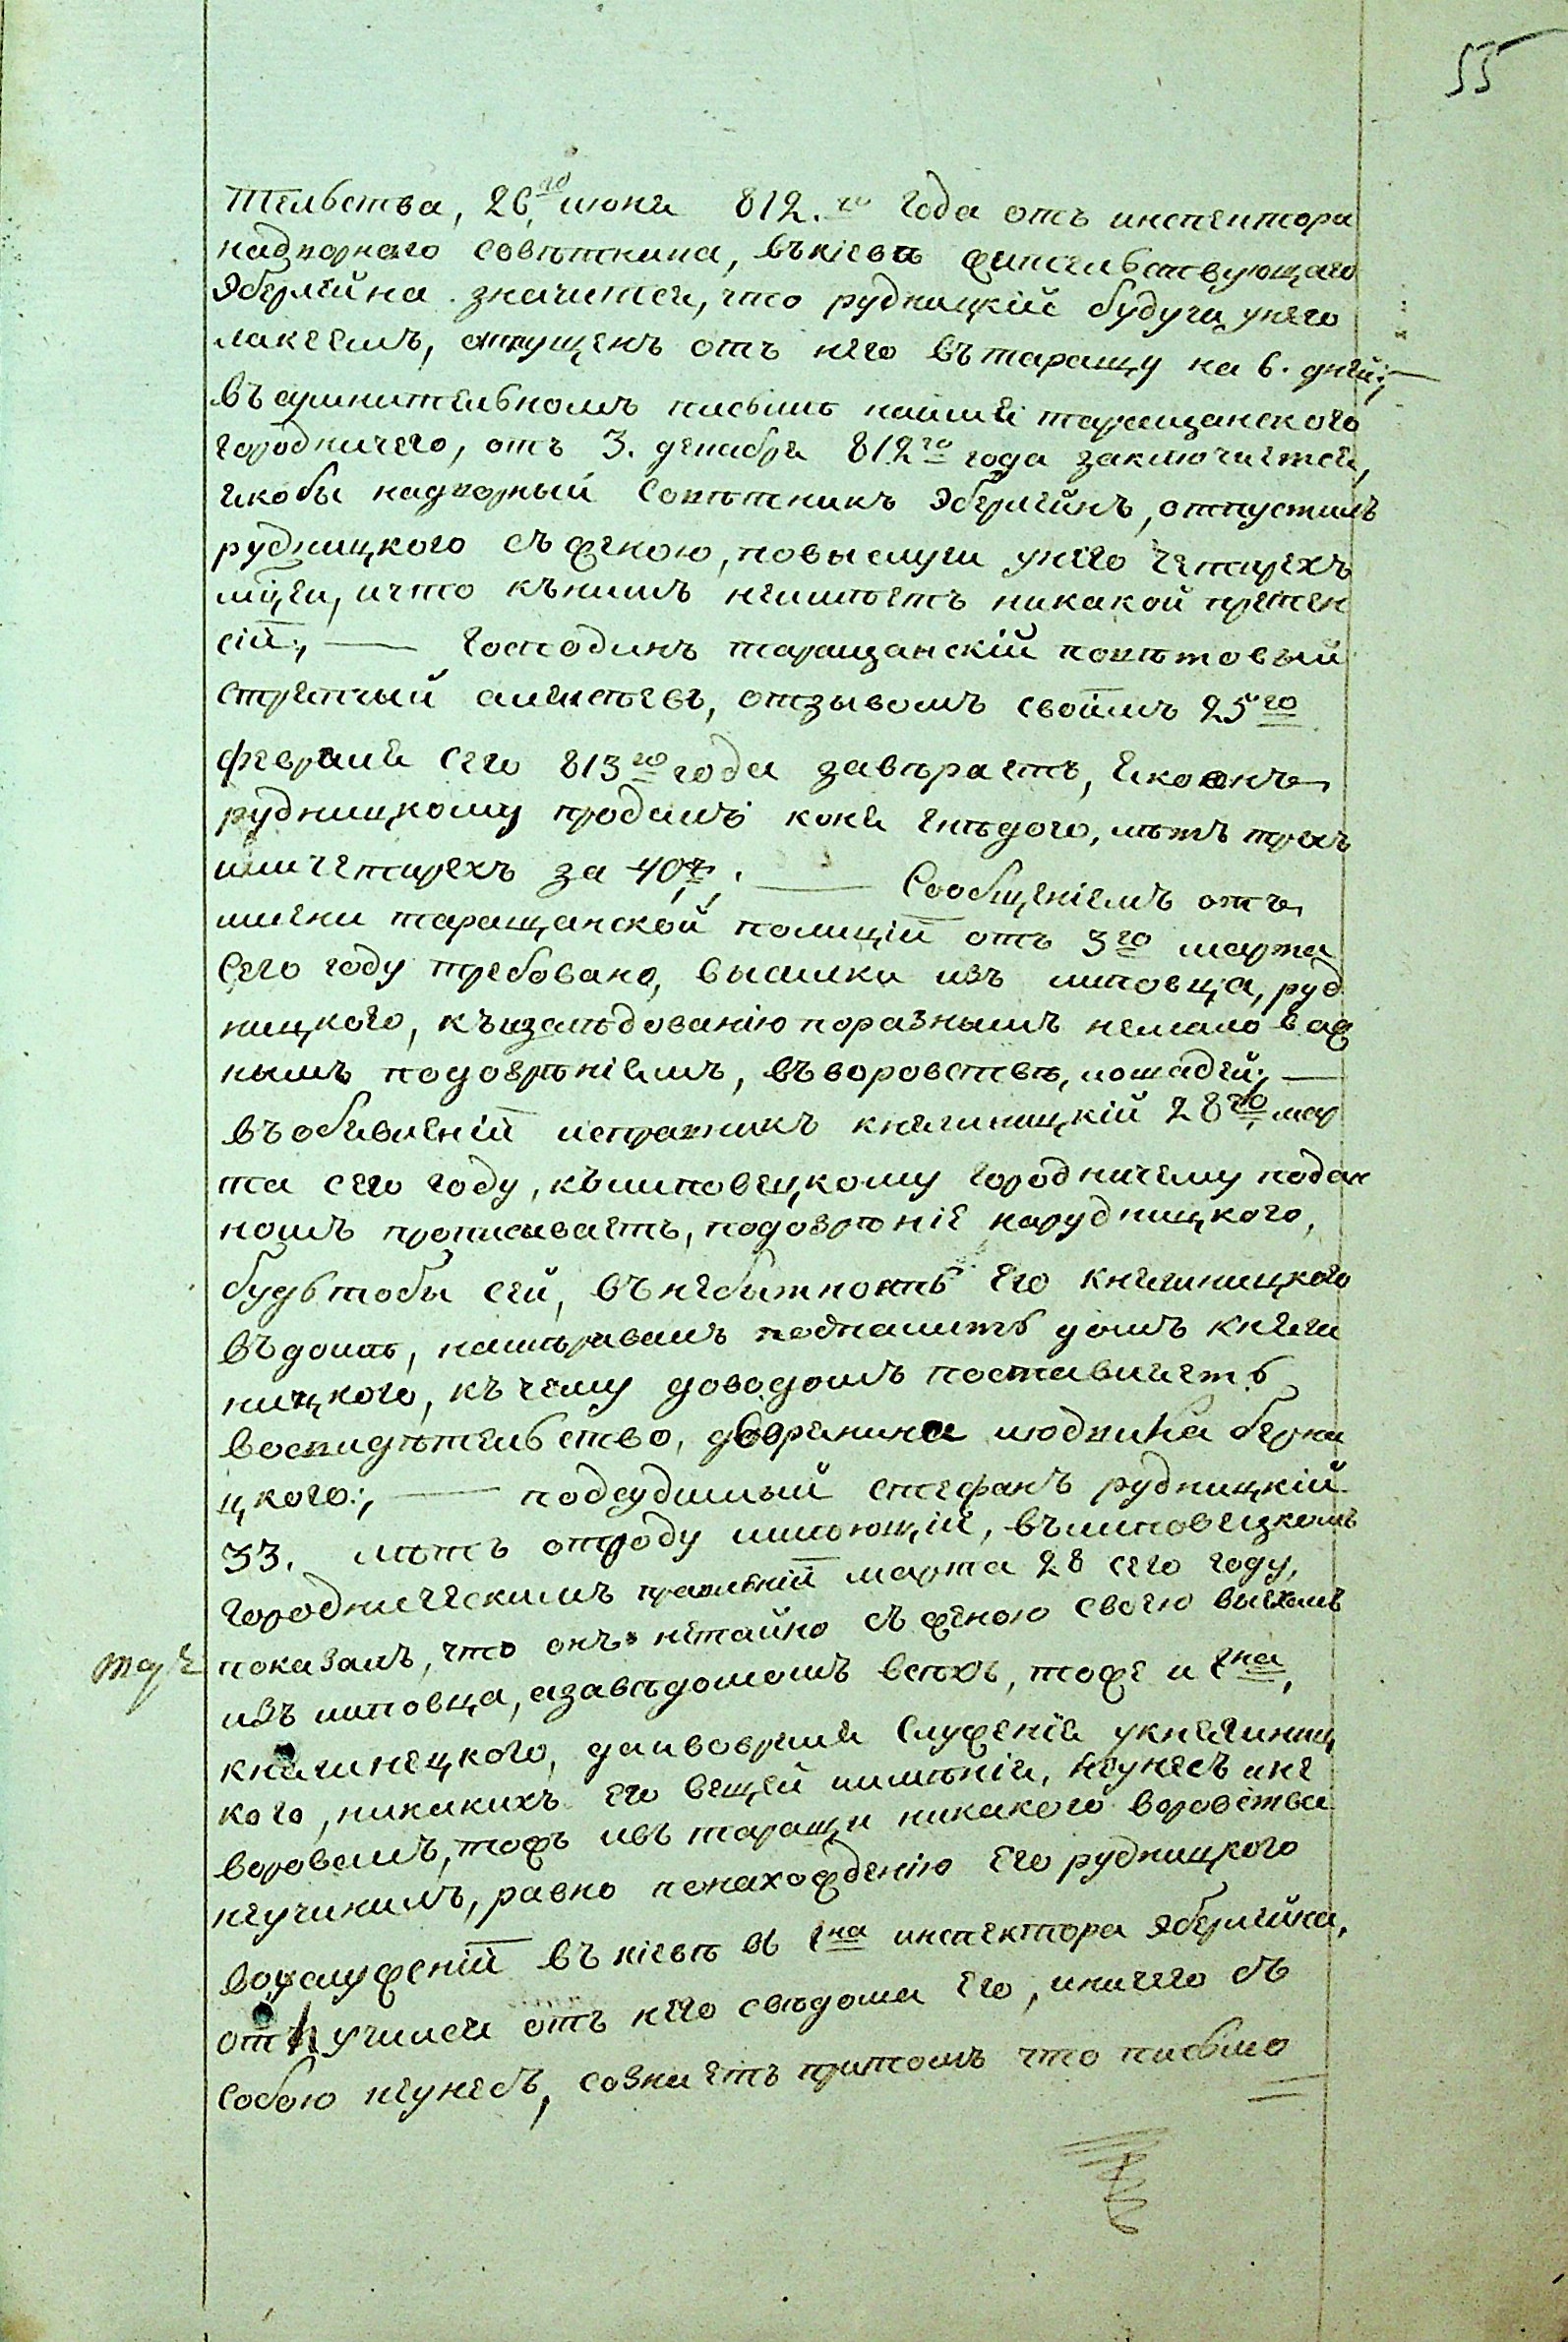 55
тельства, 26го июня 812.го года отъ инспектора
надворнаго совѣтника, въкіевѣ жительствующаго
Эберлейна. значится, что рудницкій будучи унего
лакеемъ, отпущенъ отъ него въ таращу на 6. дней;, —
въ сумнительномъ письмѣ наимя таращанского
городничего, отъ 3. декабря 812го года заключается,
якобы надворный Совѣтникъ Эберлейнъ, отпустилъ
рудницкого съ женою, повыслуги унего четырехъ
мцей, ичто кънимъ неимѣетъ никакой претен
сіи;, — Господинъ таращанскій повѣтовый
стряпчый отзывомъ своимъ 25го
февраля сего 813го года завѣраетъ, якоонъ
рудницкому продалъ коня гнѣдого, лѣтъ трехъ
или четырехъ за 40 . — Сообщеніемъ отъ
таращанской полиціи отъ 3го марта
Сего году требовано, высылки изъ липовца, руд
ницкого, къизслѣдованію поразнымъ немало важ
нымъ подозрѣніямъ, въворовствѣ, лошадей;, —
въобявленіи исправникъ княгиницкій 28го мар
та сего году, кълиповецкому городничему подан
номъ прописываетъ, подозрѣніе нарудницкого,
будьтобы сей, въ небытность его княгиницкого
въдомѣ, намѣривалъ подпалить домъ княги
ницкого, къ чему доводомъ поставляетъ
восвидѣтельство, дворянина людвика берна
цкого;, — подсудимый стефанъ рудницкій
33. лѣтъ отроду имѣющій, вълиповецкомъ
городническимъ правленіи марта 28 сего году,
показалъ, что онъ нетайно съ женою своею выехалъ
изъ липовца, азавѣдомомъ всѣхъ, тоже и гна,
тоже
княгинецкого, даивовремя служенія укнягиниц
кого, никакихъ его вещей иимѣнія, неунесъ ине
воровалъ, тожъ изъ таращи никакого воровства
неучинилъ, равно понахожденію его рудницкого
вуслуженіи въ кіевѣ въ гна инспектора Эберлейна,
отлучился отъ него свѣдома его, иничего съ
собою неунесъ, сознаетъ притомъ что письмо